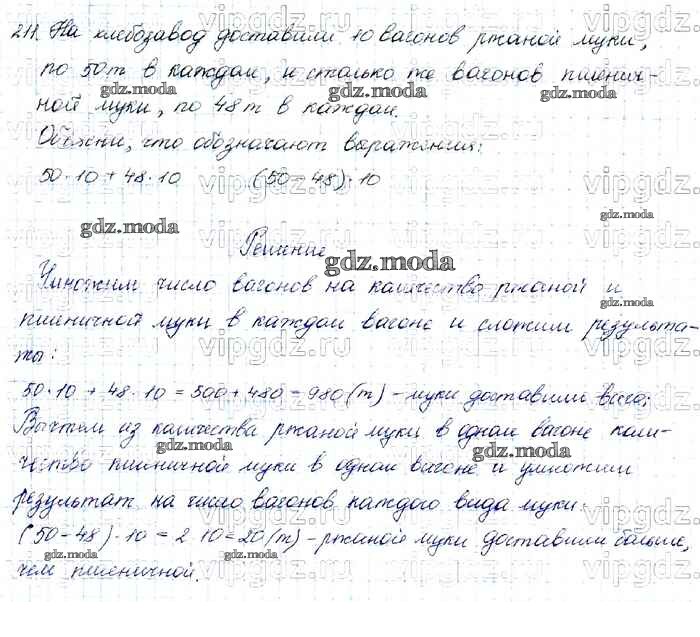 211. На хлебозавод доставили 10 вагонов ржаной муки,
по 50 т в каждом, и столько же вагонов пшенич-
ной муки, по 48 т в каждом.
Объясни, что обозначают выражения:
50·10 + 48·10 (50 - 48)·10
Решение
Умножим число вагонов на количество ржаной и
пшеничной муки в каждом вагоне и сложим результа-
ты:
50·10 + 48·10 = 500 + 480 = 980 (т) - муки доставили всего;
Вычтем из количества ржаной муки в одном вагоне коли-
чество пшеничной муки в одном вагоне и умножим
результат на число вагонов каждого вида муки.
(50 - 48)·10 = 2·10 = 20 (т) - ржаной муки доставили больше,
чем пшеничной.
vipgdz.ru
gdz.moda